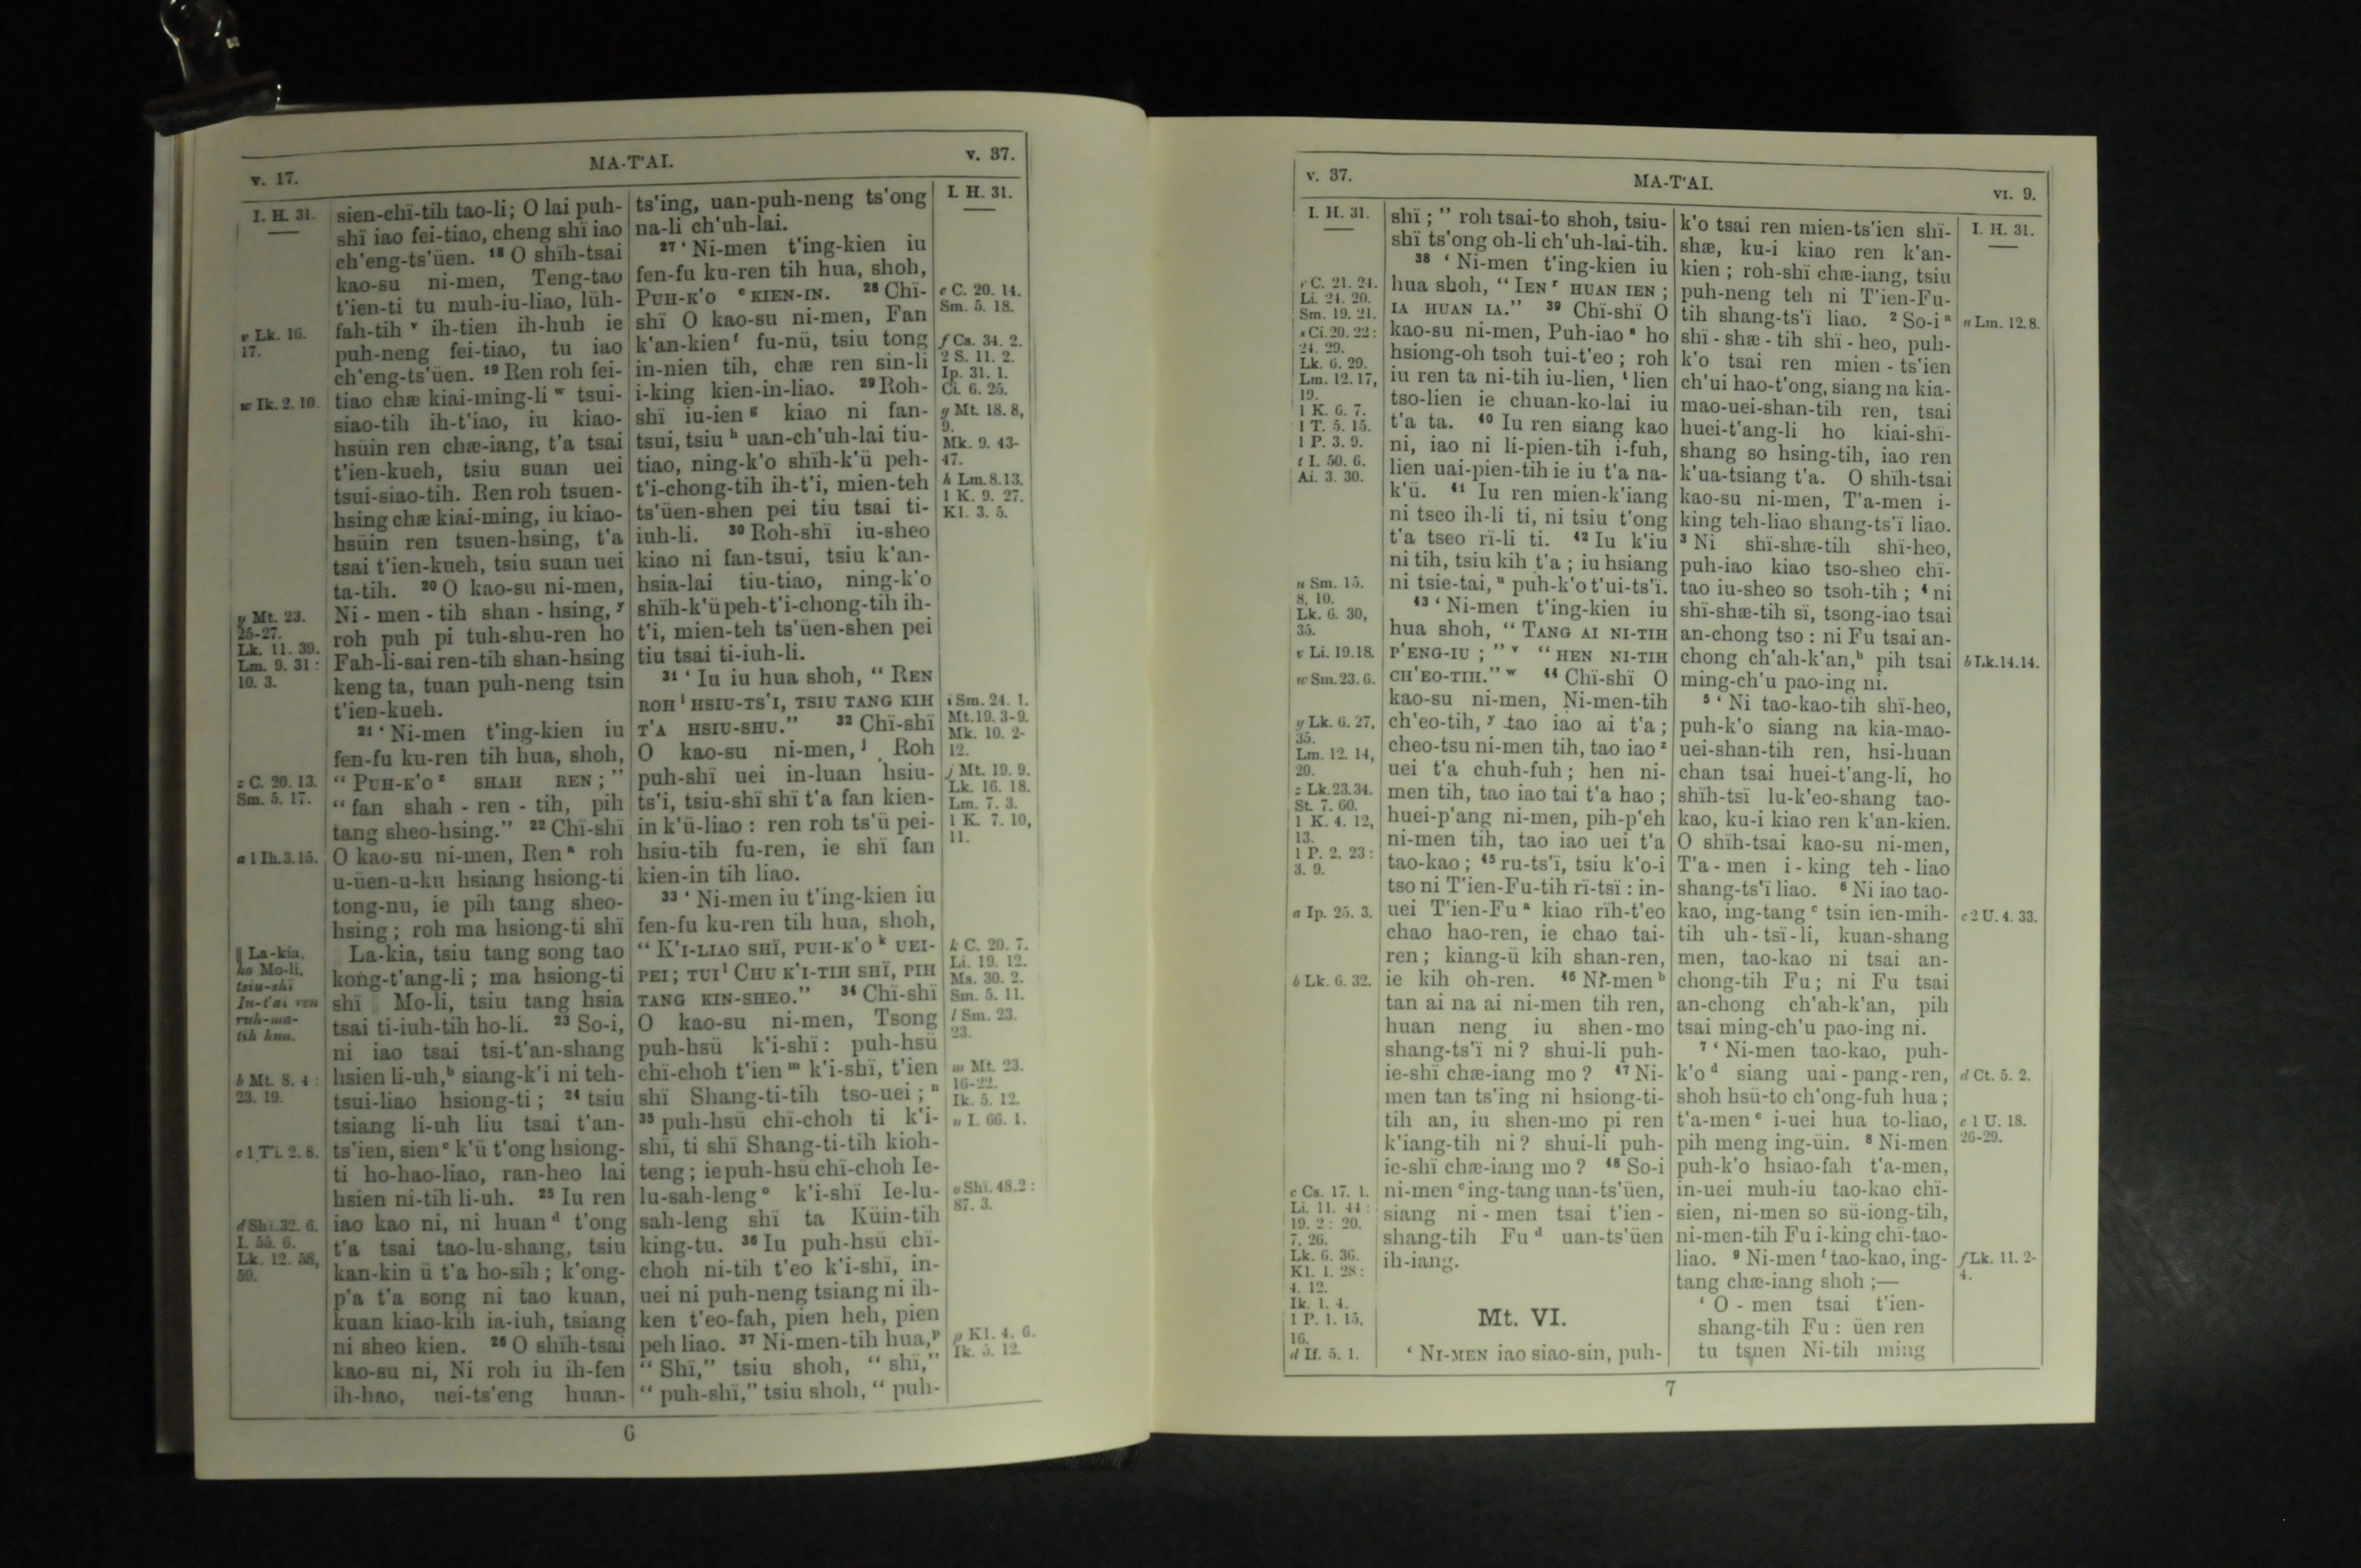 v. 17.
MA-T'AI.
v. 37.
I. H. 31.
v Lk. 16.
17.
w Ik. 2. 10.
y Mt. 23.
25-27.
Lk. 11. 39.
Lm. 9. 31 :
10. 3.
z C. 20. 13.
Sm. 5. 17.
a 1 Ih. 3. 15.
‖ La-kia,
ho Mo-li,
tsiu-shï
In-t'ai ren
ruh-ma-
tih hua.
b Mt. 8. 4 :
23. 19.
c 1 Ti. 2. 8.
d Shï. 32. 6.
I. 55. 6.
Lk. 12. 58,
59.
sien-chï-tih tao-li; O lai puh-
shï iao fei-tiao, cheng shï iao
ch'eng-ts'üen. 18 O shïh-tsai
kao-su ni-men, Teng-tao
t'ien-ti tu muh-iu-liao, lüh-
fah-tih v ih-tien ih-huh ie
puh-neng fei-tiao, tu iao
ch'eng-ts'üen. 19 Ren roh fei-
tiao chæ kiai-ming-li w tsui-
siao-tih ih-t'iao, iu kiao-
hsüin ren chæ-iang, t'a tsai
t'ien-kueh, tsiu suan uei
tsui-siao-tih. Ren roh tsuen-
hsing chæ kiai-ming, iu kiao-
hsüin ren tsuen-hsing, t'a
tsai t'ien-kueh, tsiu suan uei
ta-tih. 20 O kao-su ni-men,
Ni - men - tih shan - hsing, y
roh puh pi tuh-shu-ren ho
Fah-li-sai ren-tih shan-hsing
keng ta, tuan puh-neng tsin
t'ien-kueh.
21 ‘ Ni-men t'ing-kien iu
fen-fu ku-ren tih hua, shoh,
“ PUH-K'O z SHAH REN ; ”
“ fan shah - ren - tih, pih
tang sheo-hsing.” 22 Chï-shï
O kao-su ni-men, Ren a roh
u-üen-u-ku hsiang hsiong-ti
tong-nu, ie pih tang sheo-
hsing ; roh ma hsiong-ti shï
‖ La-kia, tsiu tang song tao
kong-t'ang-li ; ma hsiong-ti
shï ‖ Mo-li, tsiu tang hsia
tsai ti-iuh-tih ho-li. 23 So-i,
ni iao tsai tsi-t'an-shang
hsien li-uh, b siang-k'i ni teh-
tsui-liao hsiong-ti ; 24 tsiu
tsiang li-uh liu tsai t'an-
ts'ien, sien c k'ü t'ong hsiong-
ti ho-hao-liao, ran-heo lai
hsien ni-tih li-uh. 25 Iu ren
iao kao ni, ni huan d t'ong
t'a tsai tao-lu-shang, tsiu
kan-kin ü t'a ho-sih ; k'ong-
p'a t'a song ni tao kuan,
kuan kiao-kih ia-iuh, tsiang
ni sheo kien. 26 O shïh-tsai
kao-su ni, Ni roh iu ih-fen
ih-hao, uei-ts'eng huan-
ts'ing, uan-puh-neng ts'ong
na-li ch'uh-lai.
27 ‘ Ni-men t'ing-kien iu
fen-fu ku-ren tih hua, shoh,
PUH-K'O e KIEN-IN. 28 Chï-
shï O kao-su ni-men, Fan
k'an-kien f fu-nü, tsiu tong
in-nien tih, chæ ren sin-li
i-king kien-in-liao. 29 Roh-
shï iu-ien g kiao ni fan-
tsui, tsiu h uan-ch'uh-lai tiu-
tiao, ning-k'o shïh-k'ü peh-
t'i-chong-tih ih-t'i, mien-teh
ts'üen-shen pei tiu tsai ti-
iuh-li. 30 Roh-shï iu-sheo
kiao ni fan-tsui, tsiu k'an-
hsia-lai tiu-tiao, ning-k'o
shïh-k'ü peh-t'i-chong-tih ih-
t'i, mien-teh ts'üen-shen pei
tiu tsai ti-iuh-li.
31 ‘ Iu iu hua shoh, “ REN
ROH i HSIU-TS'I, TSIU TANG KIH
T'A HSIU-SHU.” 32 Chï-shï
O kao-su ni-men, j Roh
puh-shï uei in-luan hsiu-
ts'i, tsiu-shï shï t'a fan kien-
in k'ü-liao : ren roh ts'ü pei-
hsiu-tih fu-ren, ie shï fan
kien-in tih liao.
33 ‘ Ni-men iu t'ing-kien iu
fen-fu ku-ren tih hua, shoh,
“ K'I-LIAO SHÏ, PUH-K'O k UEI-
PEI ; TUI l CHU K'I-TIH SHÏ, PIH
TANG KIN-SHEO.” 34 Chï-shï
O kao-su ni-men, Tsong
puh-hsü k'i-shï : puh-hsü
chï-choh t'ien m k'i-shï, t'ien
shï Shang-ti-tih tso-uei ; n
35 puh-hsü chï-choh ti k'i-
shï, ti shï Shang-ti-tih kioh-
teng ; ie puh-hsü chï-choh Ie-
lu-sah-leng o k'i-shï Ie-lu-
sah-leng shï ta Küin-tih
king-tu. 36 Iu puh-hsü chï-
choh ni-tih t'eo k'i-shï, in-
uei ni puh-neng tsiang ni ih-
ken t'eo-fah, pien heh, pien
peh liao. 37 Ni-men-tih hua, p
“ Shï,” tsiu shoh, “ shï,”
“ puh-shï,” tsiu shoh, “ puh-
I. H. 31.
e C. 20. 14.
Sm. 5. 18.
f Cs. 34. 2.
2 S. 11. 2.
Ip. 31. 1.
Ci. 6. 25.
g Mt. 18. 8,
9.
Mk. 9. 43-
47.
h Lm. 8. 13.
1 K. 9. 27.
Kl. 3. 5.
i Sm. 24. 1.
Mt. 19. 3-9.
Mk. 10. 2-
12.
j Mt. 19. 9.
Lk. 16. 18.
Lm. 7. 3.
1 K. 7. 10,
11.
k C. 20. 7.
Li. 19. 12.
Ms. 30. 2.
Sm. 5. 11.
l Sm. 23.
23.
m Mt. 23.
16-22.
Ik. 5. 12.
n I. 66. 1.
o Shï. 48. 2 :
87. 3.
p Kl. 4. 6.
Ik. 5. 12.
6
v. 37.
MA-T'AI.
VI. 9.
I. H. 31.
r C. 21. 24.
Li. 24. 20.
Sm. 19. 21.
s Ci. 20. 22 :
24. 29.
Lk. 6. 29.
Lm. 12. 17,
19.
1 K. 6. 7.
1 T. 5. 15.
1 P. 3. 9.
t I. 50. 6.
Ai. 3. 30.
u Sm. 15.
8, 10.
Lk. 6. 30,
35.
v Li. 19. 18.
w Sm. 23. 6.
y Lk. 6. 27,
35.
Lm. 12. 14,
20.
z Lk. 23. 34.
St. 7. 60.
1 K. 4. 12,
13.
1 P. 2. 23 :
3. 9.
a Ip. 25. 3.
b Lk. 6. 32.
c Cs. 17. 1.
Li. 11. 44 :
19. 2 : 20.
7, 26.
Lk. 6. 36.
Kl. 1. 28 :
4. 12.
Ik. 1. 4.
1 P. 1. 15,
16.
d If. 5. 1.
shï ; ” roh tsai-to shoh, tsiu-
shï ts'ong oh-li ch'uh-lai-tih.
38 ‘ Ni-men t'ing-kien iu
hua shoh, “ IEN r HUAN IEN ;
IA HUAN IA.” 39 Chï-shï O
kao-su ni-men, Puh-iao s ho
hsiong-oh tsoh tui-t'eo ; roh
iu ren ta ni-tih iu-lien, t lien
tso-lien ie chuan-ko-lai iu
t'a ta. 40 Iu ren siang kao
ni, iao ni li-pien-tih i-fuh,
lien uai-pien-tih ie iu t'a na-
k'ü. 41 Iu ren mien-k'iang
ni tseo ih-li ti, ni tsiu t'ong
t'a tseo rï-li ti. 42 Iu k'iu
ni tih, tsiu kih t'a ; iu hsiang
ni tsie-tai, u puh-k'o t'ui-ts'ï.
43 ‘ Ni-men t'ing-kien iu
hua shoh, “ TANG AI NI-TIH
P'ENG-IU ; ” v “ HEN NI-TIH
CH'EO-TIH.” w 44 Chï-shï O
kao-su ni-men, Ni-men-tih
ch'eo-tih, y tao iao ai t'a ;
cheo-tsu ni-men tih, tao iao z
uei t'a chuh-fuh ; hen ni-
men tih, tao iao tai t'a hao ;
huei-p'ang ni-men, pih-p'eh
ni-men tih, tao iao uei t'a
tao-kao ; 45 ru-ts'ï, tsiu k'o-i
tso ni T'ien-Fu-tih rï-tsï : in-
uei T'ien-Fu a kiao rïh-t'eo
chao hao-ren, ie chao tai-
ren ; kiang-ü kih shan-ren,
ie kih oh-ren. 46 Ni-men b
tan ai na ai ni-men tih ren,
huan neng iu shen-mo
shang-ts'ï ni ? shui-li puh-
ie-shï chæ-iang mo ? 47 Ni-
men tan ts'ing ni hsiong-ti-
tih an, iu shen-mo pi ren
k'iang-tih ni ? shui-li puh-
ie-shï chæ-iang mo ? 48 So-i
ni-men c ing-tang uan-ts'üen,
siang ni - men tsai t'ien -
shang-tih Fu d uan-ts'üen
ih-iang.
Mt. VI.
‘ NI-MEN iao siao-sin, puh-
k'o tsai ren mien-ts'ien shï-
shæ, ku-i kiao ren k'an-
kien ; roh-shï chæ-iang, tsiu
puh-neng teh ni T'ien-Fu-
tih shang-ts'ï liao. 2 So-i a
shï - shæ - tih shï - heo, puh-
k'o tsai ren mien - ts'ien
ch'ui hao-t'ong, siang na kia-
mao-uei-shan-tih ren, tsai
huei-t'ang-li ho kiai-shï-
shang so hsing-tih, iao ren
k'ua-tsiang t'a. O shïh-tsai
kao-su ni-men, T'a-men i-
king teh-liao shang-ts'ï liao.
3 Ni shï-shæ-tih shï-heo,
puh-iao kiao tso-sheo chï-
tao iu-sheo so tsoh-tih ; 4 ni
shï-shæ-tih sï, tsong-iao tsai
an-chong tso : ni Fu tsai an-
chong ch'ah-k'an, b pih tsai
ming-ch'u pao-ing ni.
5 ‘ Ni tao-kao-tih shï-heo,
puh-k'o siang na kia-mao-
uei-shan-tih ren, hsi-huan
chan tsai huei-t'ang-li, ho
shïh-tsï lu-k'eo-shang tao-
kao, ku-i kiao ren k'an-kien.
O shïh-tsai kao-su ni-men,
T'a - men i - king teh - liao
shang-ts'ï liao. 6 Ni iao tao-
kao, ing-tang c tsin ien-mih-
tih uh-tsï-li, kuan-shang
men, tao-kao ni tsai an-
chong-tih Fu ; ni Fu tsai
an-chong ch'ah-k'an, pih
tsai ming-ch'u pao-ing ni.
7 ‘ Ni-men tao-kao, puh-
k'o d siang uai - pang-ren,
shoh hsü-to ch'ong-fuh hua ;
t'a-men e i-uei hua to-liao,
pih meng ing-üin. 8 Ni-men
puh-k'o hsiao-fah t'a-men,
in-uei muh-iu tao-kao chï-
sien, ni-men so sü-iong-tih,
ni-men-tih Fu i-king chï-tao-
liao. 9 Ni-men f tao-kao, ing-
tang chæ-iang shoh ;—
‘ O - men tsai t'ien-
shang-tih Fu : üen ren
tu tsuen Ni-tih ming
I. H. 31.
a Lm. 12. 8.
b Lk. 14. 14.
c 2 U. 4. 33.
d Ct. 5. 2.
e 1 U. 18.
26-29.
f Lk. 11. 2-
4.
7